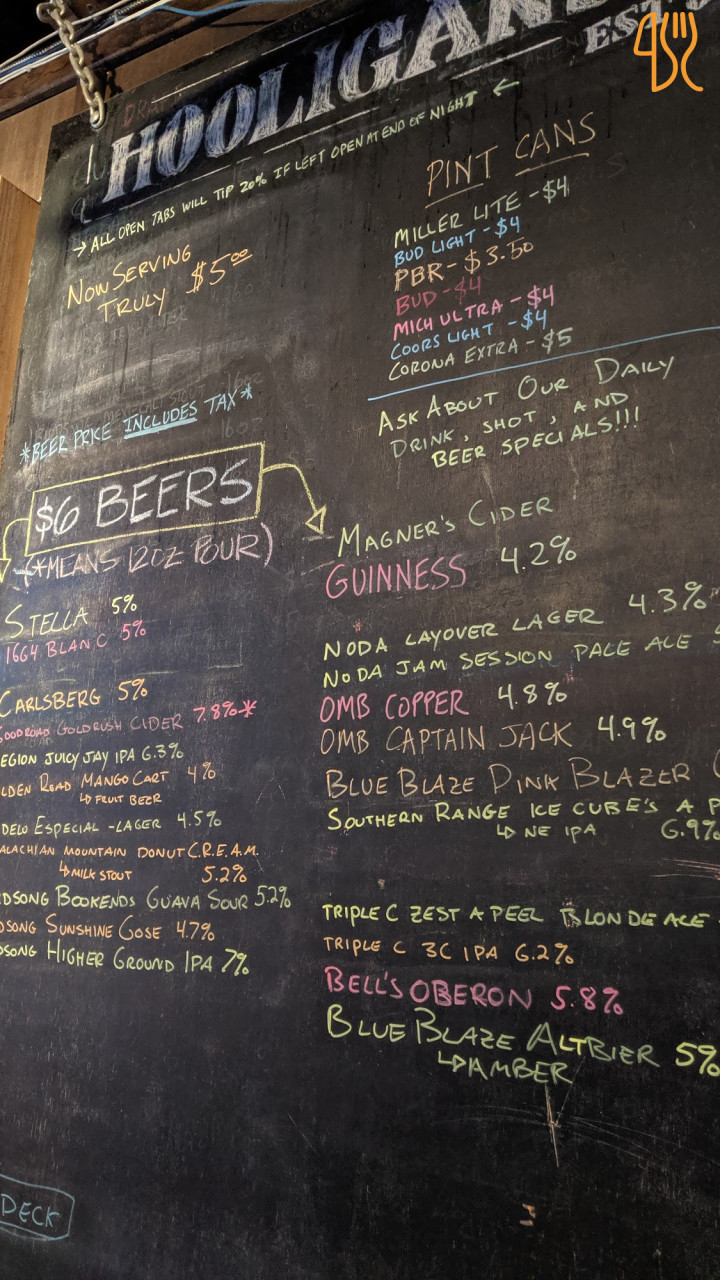 HOOLIGANS
EST
→ ALL OPEN TABS WILL TIP 20% IF LEFT OPEN AT END OF NIGHT ←
NOW SERVING
TRULY $5.00
*BEER PRICE INCLUDES TAX*
$6 BEERS
(*MEANS 12OZ POUR)
STELLA 5%
1664 BLANC 5%
CARLSBERG 5%
GOLDRUSH CIDER 7.8%*
EGION JUICY JAY IPA 6.3%
LDEN ROAD MANGO CART 4%
↳ FRUIT BEER
DELO ESPECIAL - LAGER 4.5%
ALACHIAN MOUNTAIN DONUT C.R.E.A.M.
↳ MILK STOUT 5.2%
DSONG BOOKENDS GUAVA SOUR 5.2%
DSONG SUNSHINE GOSE 4.7%
DSONG HIGHER GROUND IPA 7%
DECK
PINT CANS
MILLER LITE - $4
BUD LIGHT - $4
PBR - $3.50
BUD - $4
MICH ULTRA - $4
COORS LIGHT - $4
CORONA EXTRA - $5
ASK ABOUT OUR DAILY
DRINK, SHOT, AND
BEER SPECIALS!!!
MAGNER'S CIDER
GUINNESS 4.2%
NODA LAYOVER LAGER 4.3%
NODA JAM SESSION PALE ALE
OMB COPPER 4.8%
OMB CAPTAIN JACK 4.9%
BLUE BLAZE DINK BLAZER
SOUTHERN RANGE ICE CUBE'S A P
↳ NE IPA 6.9%
TRIPLE C ZEST A PEEL BLONDE ALE
TRIPLE C 3C IPA 6.2%
BELL'S OBERON 5.8%
BLUE BLAZE ALTBIER 5%
↳ AMBER